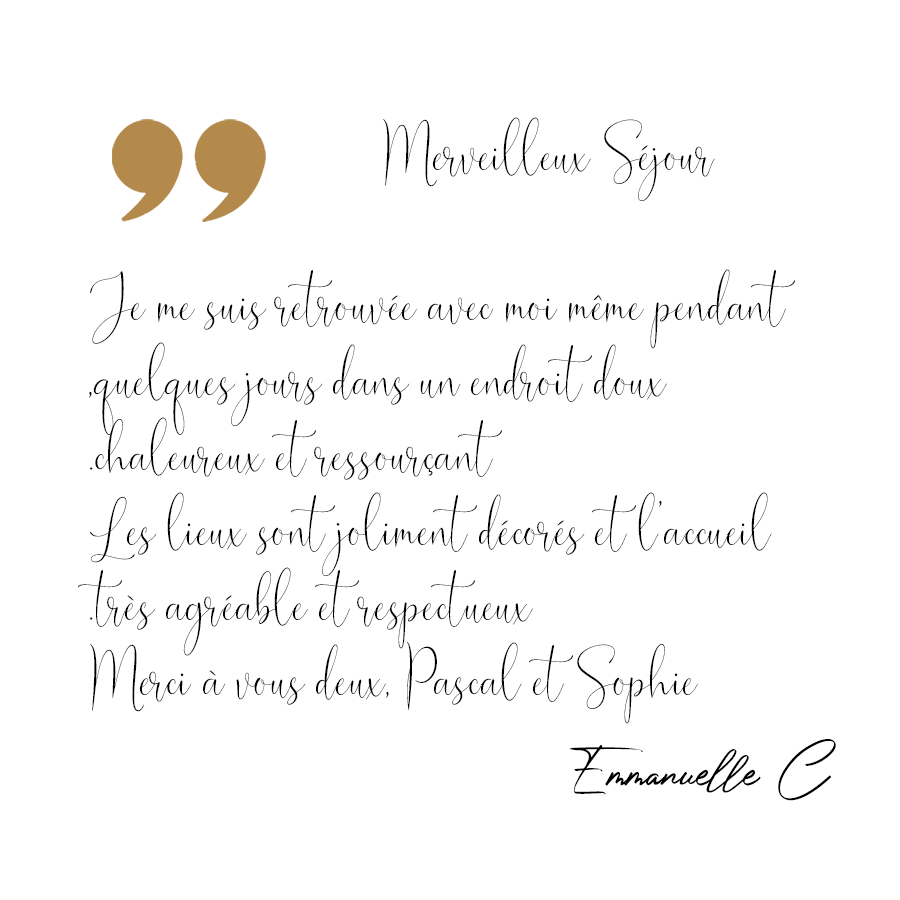 Merveilleux Séjour
Je me suis retrouvée avec moi même pendant
,quelques jours dans un endroit doux
.chaleureux et ressourçant
Les lieux sont joliment décorés et l'accueil
.très agréable et respectueux
Merci à vous deux, Pascal et Sophie
Emmanuelle C